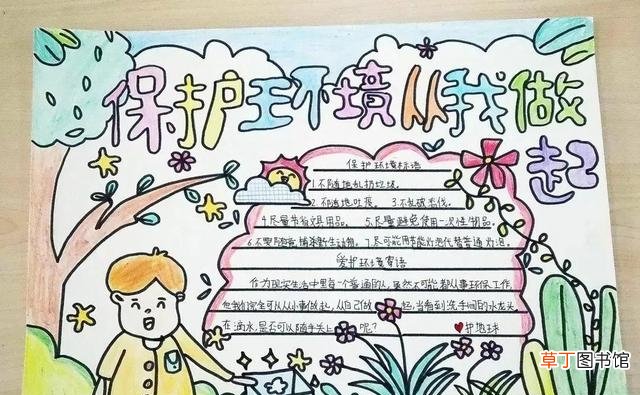 保护环境从我做起
保护环境标语
1.不随地乱扔垃圾。
2.不随地吐痰。 3.不乱砍乱伐。
4.尽量节省文具用品。 5.尽量避免使用一次性物品。
6.不要随意捕杀野生动物。 7.尽可能用节能灯泡代替普通灯泡。
爱护环境寄语
作为现实生活中里每一个普通的人，虽然不可能都从事环保工作，
但我们完全可以从小事做起，从自己做起，当看到洗手间的水龙头
在滴水，是否可以随手关上呢？ 护地球
草丁图书馆